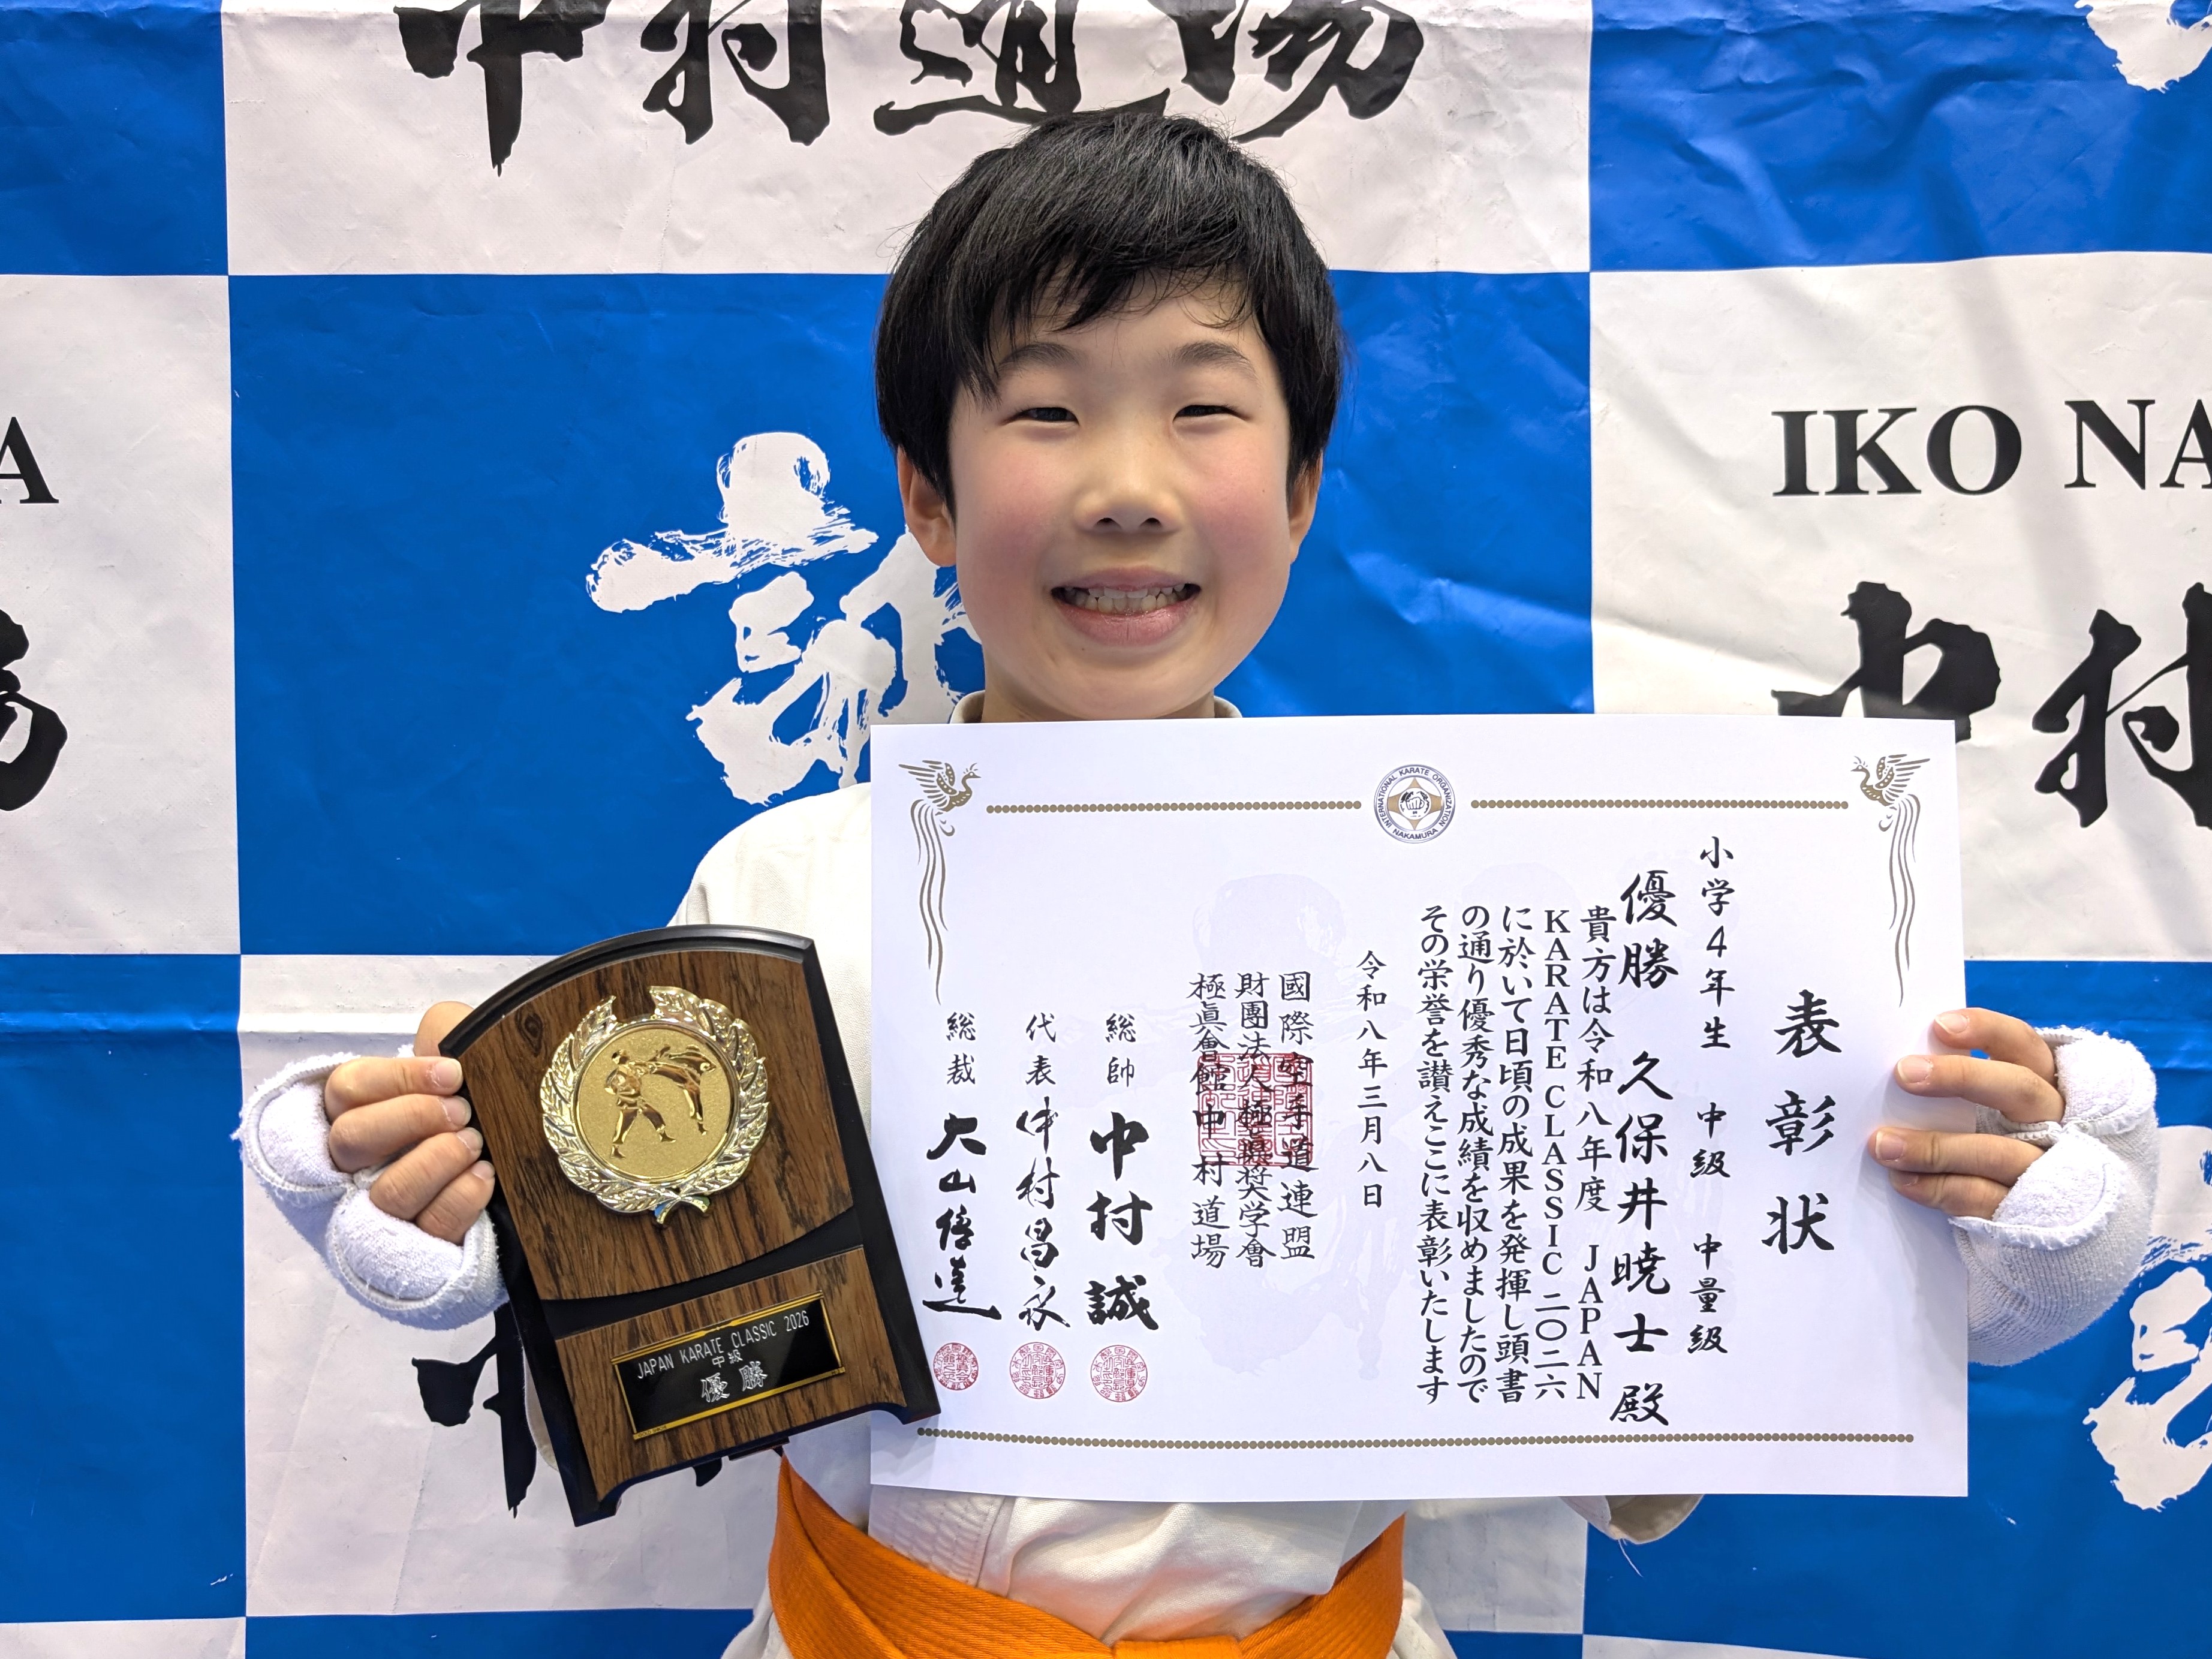 中村道場
A
IKO NA
中村
場
誠
表彰状
小学4年生 中級 中量級
優勝 久保井暁士殿
貴方は令和八年度 JAPAN
KARATE CLASSIC 二〇二六
に於いて日頃の成果を発揮し頭書
の通り優秀な成績を収めましたので
その栄誉を讃えここに表彰いたします
令和八年三月八日
國際空手道連盟
財團法人極真奨学會
極眞會館中村道場
総帥 中村誠
代表 中村昌永
総裁 大山倍達
INTERNATIONAL KARATE ORGANIZATION
NAKAMURA
JAPAN KARATE CLASSIC 2026
中級
優勝